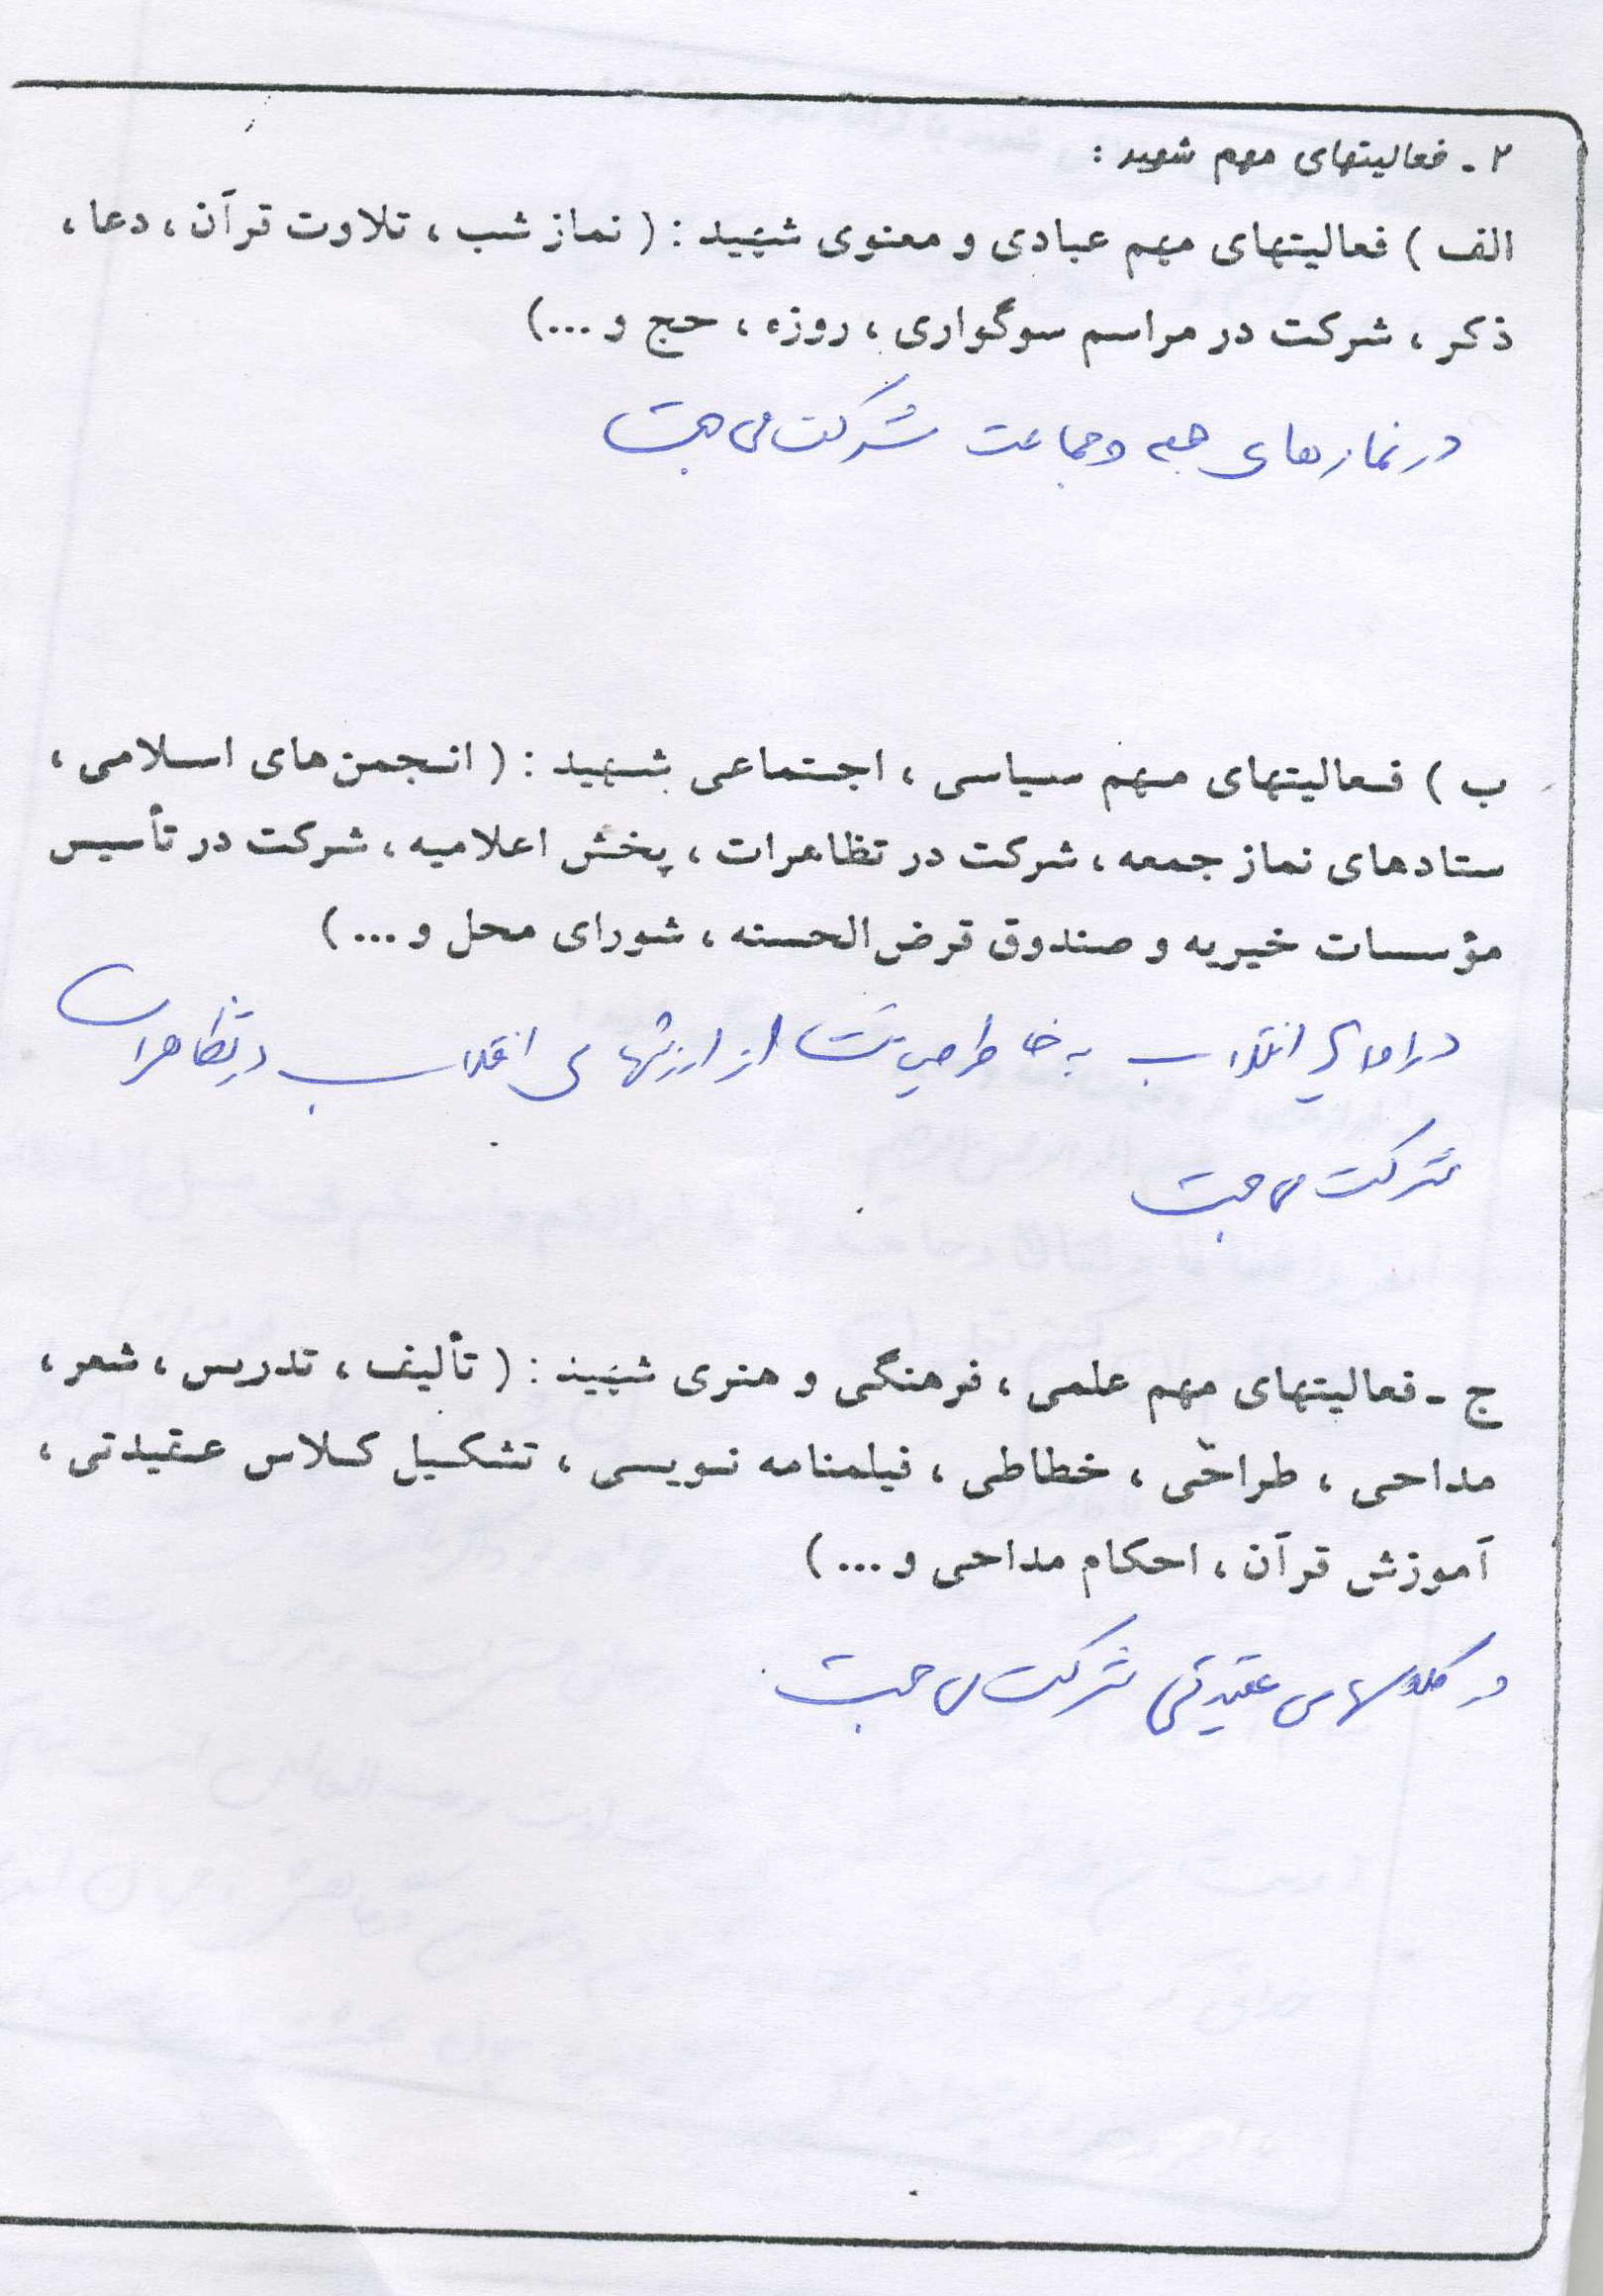 ۲ - فعالیتهای مهم شهید :
الف ) فعالیتهای مهم عبادی و معنوی شهید : ( نماز شب ، تلاوت قرآن ، دعا ،
ذکر ، شرکت در مراسم سوگواری ، روزه ، حج و ...)
در نمازهای جمعه و جماعت شرکت می جست
ب ) فعالیتهای مهم سیاسی ، اجتماعی شهید : ( انجمن‌های اسلامی ،
ستادهای نماز جمعه ، شرکت در تظاهرات ، پخش اعلامیه ، شرکت در تأسیس
مؤسسات خیریه و صندوق قرض‌الحسنه ، شورای محل و ... )
در اوایل انقلاب به خاطر صیانت از ارزشهای انقلاب در تظاهرات
شرکت می جست
ج - فعالیتهای مهم علمی ، فرهنگی و هنری شهید : ( تألیف ، تدریس ، شعر ،
مداحی ، طراحی ، خطاطی ، فیلمنامه نویسی ، تشکیل کلاس عقیدتی ،
آموزش قرآن ، احکام مداحی و ... )
در کلاسهای عقیدتی شرکت می جست